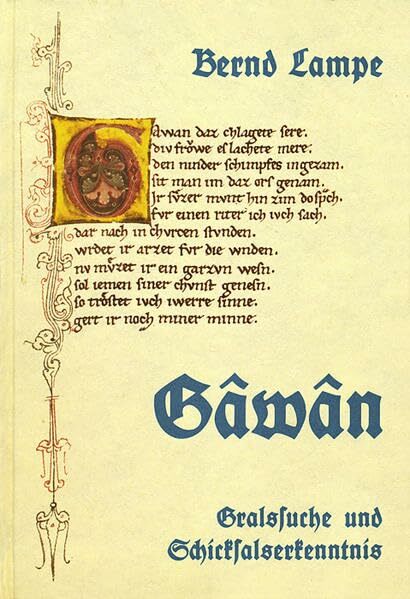 Bernd Lampe
Gawan daz chlagete sere.
div frŏwe es lachete mere.
den ninder schimpfes ingezam.
sit man im daz ors genam.
Ir svͤzer mvnt hin zim do spͣch.
fvr einen riter ich ivch sach.
dar nach in chvrcen stvnden.
wrdet ir arzet fvr die wnden.
nv mvͤzet ir ein garzvn wesn.
sol iemen siner chvnst genesn.
so tröstet ivch iwerre sinne.
gert ir noch miner minne.
Gâwân
Gralssuche und
Schicksalserkenntnis